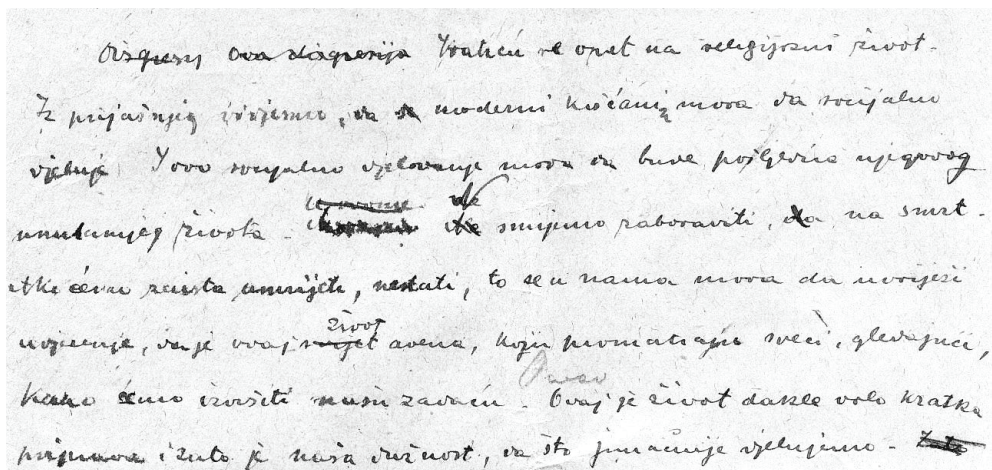 Ova digresija Vratiću se opet na religijozni život.
Iz prijašnjeg vidjesmo, da moderni kršćanin mora da socijalno
djeluje I ovo socijalno djelovanje mora da bude posljedica njegovog
unutarnjeg života. Ne smijemo zaboraviti, da na smrt.
ćemo zaista umrijeti, nestati, to se u nama mora da uvriježi
uvjerenje, da je ovaj život arena, koju promatraju sveci, gledajući,
kako ćemo izvršiti našu zadaću. Ovaj je život dakle vrlo kratka
priprava i zato je naša dužnost, da što junačnije djelujemo.